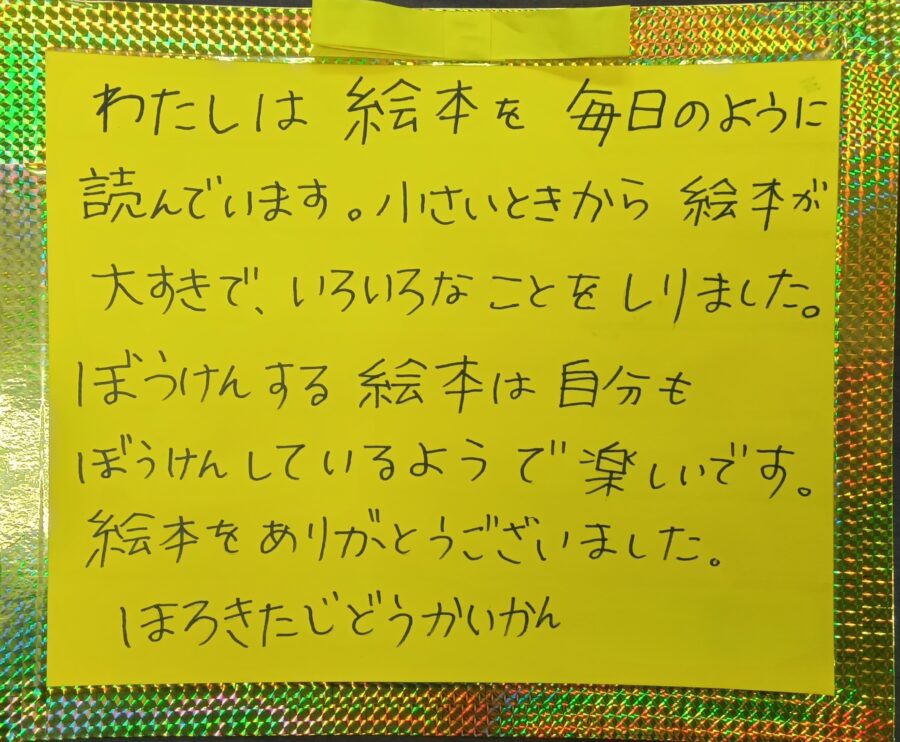 わたしは 絵本を 毎日のように
読んでいます。小さいときから 絵本が
大すきで、いろいろなことをしりました。
ぼうけんする 絵本は 自分も
ぼうけんしているようで 楽しいです。
絵本をありがとうございました。
ほろきたじどうかいかん